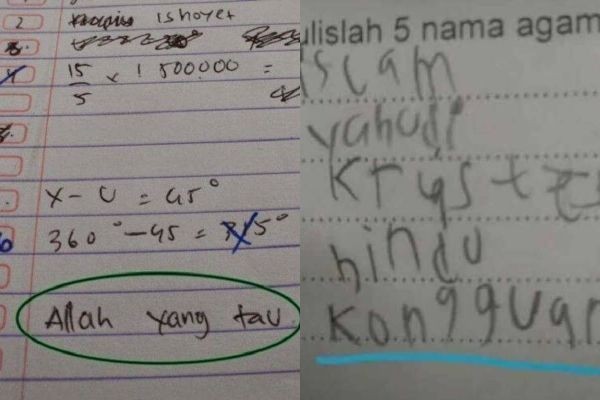 2 ishoyer
15/5 x 1 500.000 =
x - U = 45°
360° - 45 = 315°
Allah yang tau
ulislah 5 nama agam
iscam
yahudi
Kryste
hindu
Konggguan